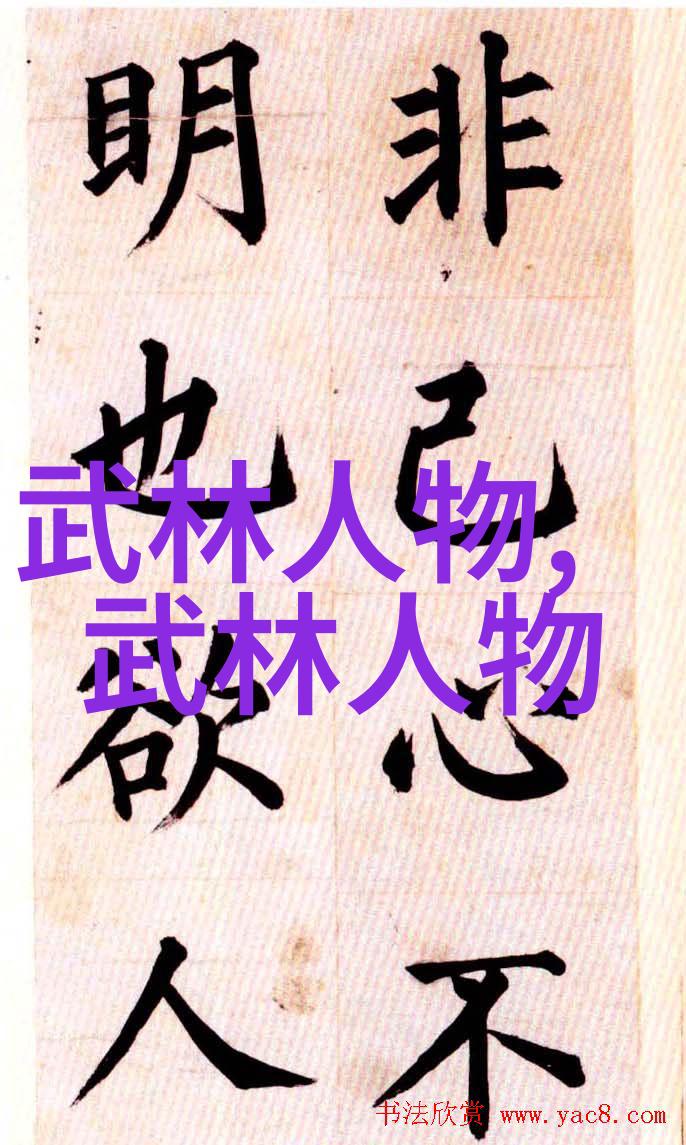 非己心不
明也欲人
武林人物,
武林人物
书法欣赏 www.yac8.com